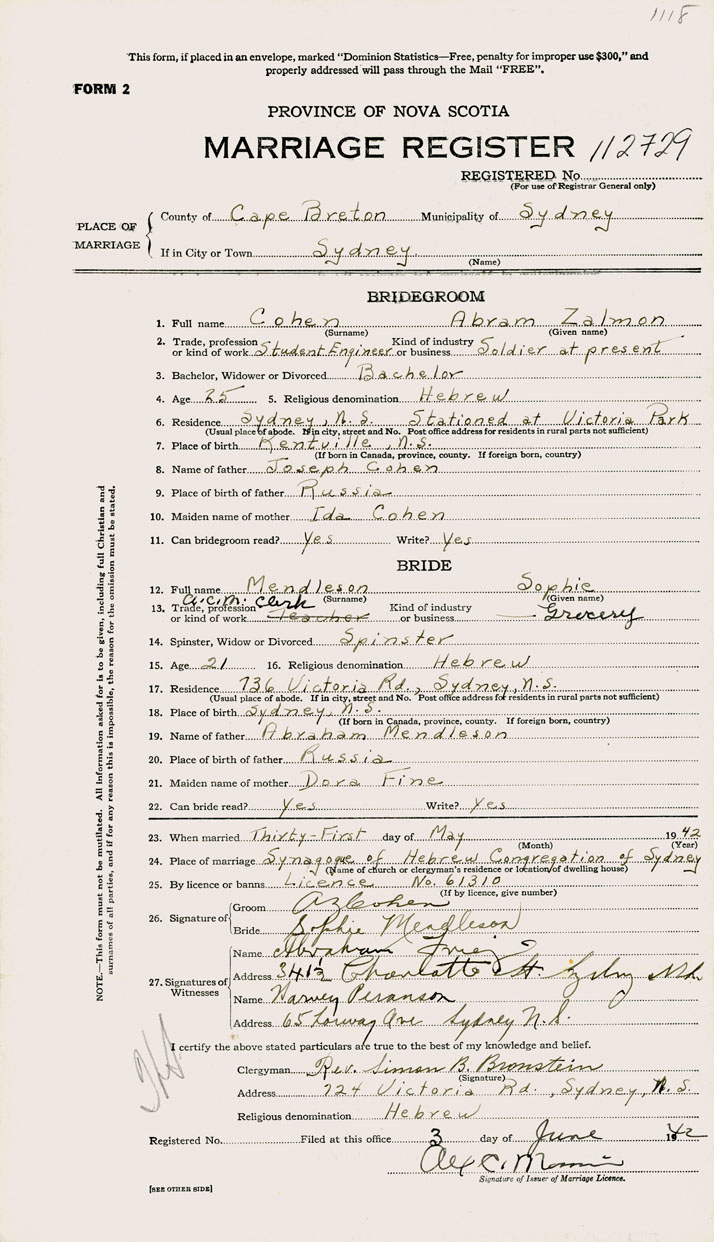 1118
"This form, if placed in an envelope, marked "Dominion Statistics—Free, penalty for improper use $300," and
properly addressed will pass through the Mail "FREE".
FORM 2
PROVINCE OF NOVA SCOTIA
MARRIAGE REGISTER 112729
REGISTERED No.
(For use of Registrar General only)
PLACE OF MARRIAGE
County of Cape Breton Municipality of Sydney
If in City or Town Sydney
(Name)
BRIDEGROOM
1. Full name Cohen Abram Zalmon
(Surname) (Given name)
2. Trade, profession or kind of work Student Engineer Kind of industry or business Soldier at present
3. Bachelor, Widower or Divorced Bachelor
4. Age 25 5. Religious denomination Hebrew
6. Residence Sydney, N.S. Stationed at Victoria Park
(Usual place of abode. If in city, street and No. Post office address for residents in rural parts not sufficient)
7. Place of birth Kentville, N.S.
(If born in Canada, province, county. If foreign born, country)
8. Name of father Joseph Cohen
9. Place of birth of father Russia
10. Maiden name of mother Ida Cohen
11. Can bridegroom read? Yes Write? Yes
BRIDE
12. Full name Mendleson Sophie
(Surname) (Given name)
13. Trade, profession or kind of work a.c.m. Clerk Teacher Kind of industry or business Grocery
14. Spinster, Widow or Divorced Spinster
15. Age 21 16. Religious denomination Hebrew
17. Residence 736 Victoria Rd., Sydney, N.S.
(Usual place of abode. If in city, street and No. Post office address for residents in rural parts not sufficient)
18. Place of birth Sydney, N.S.
(If born in Canada, province, county. If foreign born, country)
19. Name of father Abraham Mendleson
20. Place of birth of father Russia
21. Maiden name of mother Dora Fine
22. Can bride read? Yes Write? Yes
23. When married Thirty-First day of May 1942
(Month) (Year)
24. Place of marriage Synagogue of Hebrew Congregation of Sydney
(Name of church or clergyman's residence or location of dwelling house)
25. By licence or banns Licence No. 61310
(If by licence, give number)
26. Signature of
Groom AZCohen
Bride Sophie Mendleson
27. Signatures of Witnesses
Name Abraham
Address 341½ Charlotte St.
Name Harvey Peranson
Address 65 Lorway Ave Sydney N.S.
I certify the above stated particulars are true to the best of my knowledge and belief.
Clergyman Rev. Simon B. Bronstein
(Signature)
Address 724 Victoria Rd., Sydney, N.S.
Religious denomination Hebrew
Registered No. Filed at this office 3 day of June 1942
Alex C.
Signature of Issuer of Marriage Licence.
[SEE OTHER SIDE]
NOTE.—This form must not be mutilated. All information asked for is to be given, including full Christian and
surnames of all parties, and if for any reason this is impossible, the reason for the omission must be stated.